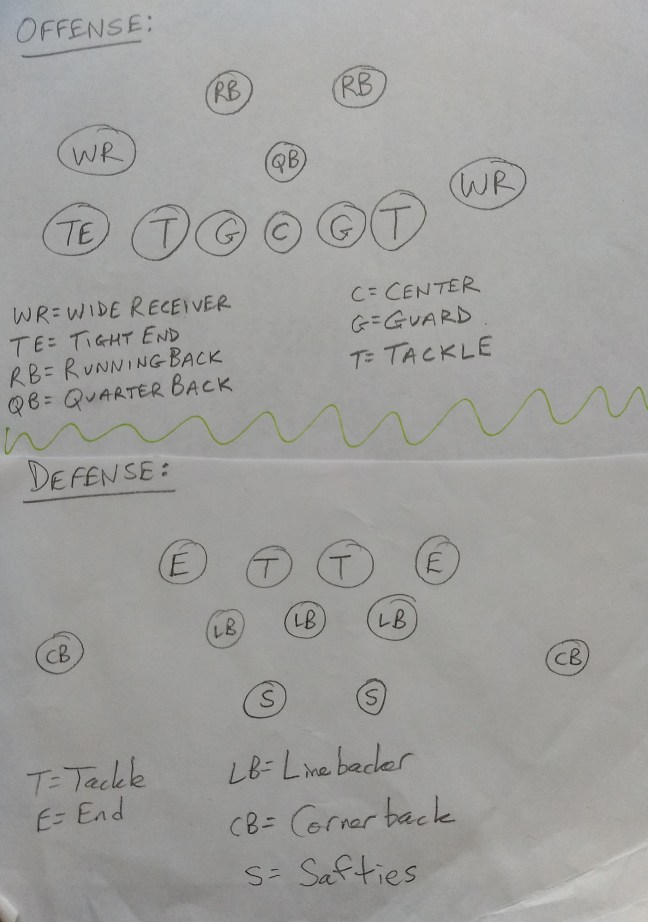 OFFENSE:
RB RB
WR QB WR
TE T G C G T
WR= WIDE RECEIVER
TE= TIGHT END
RB= RUNNING BACK
QB= QUARTER BACK
C= CENTER
G= GUARD
T= TACKLE
DEFENSE:
E T T E
LB LB LB
CB CB
S S
T= Tackle
E= End
LB= Linebacker
CB= Cornerback
S= Safties